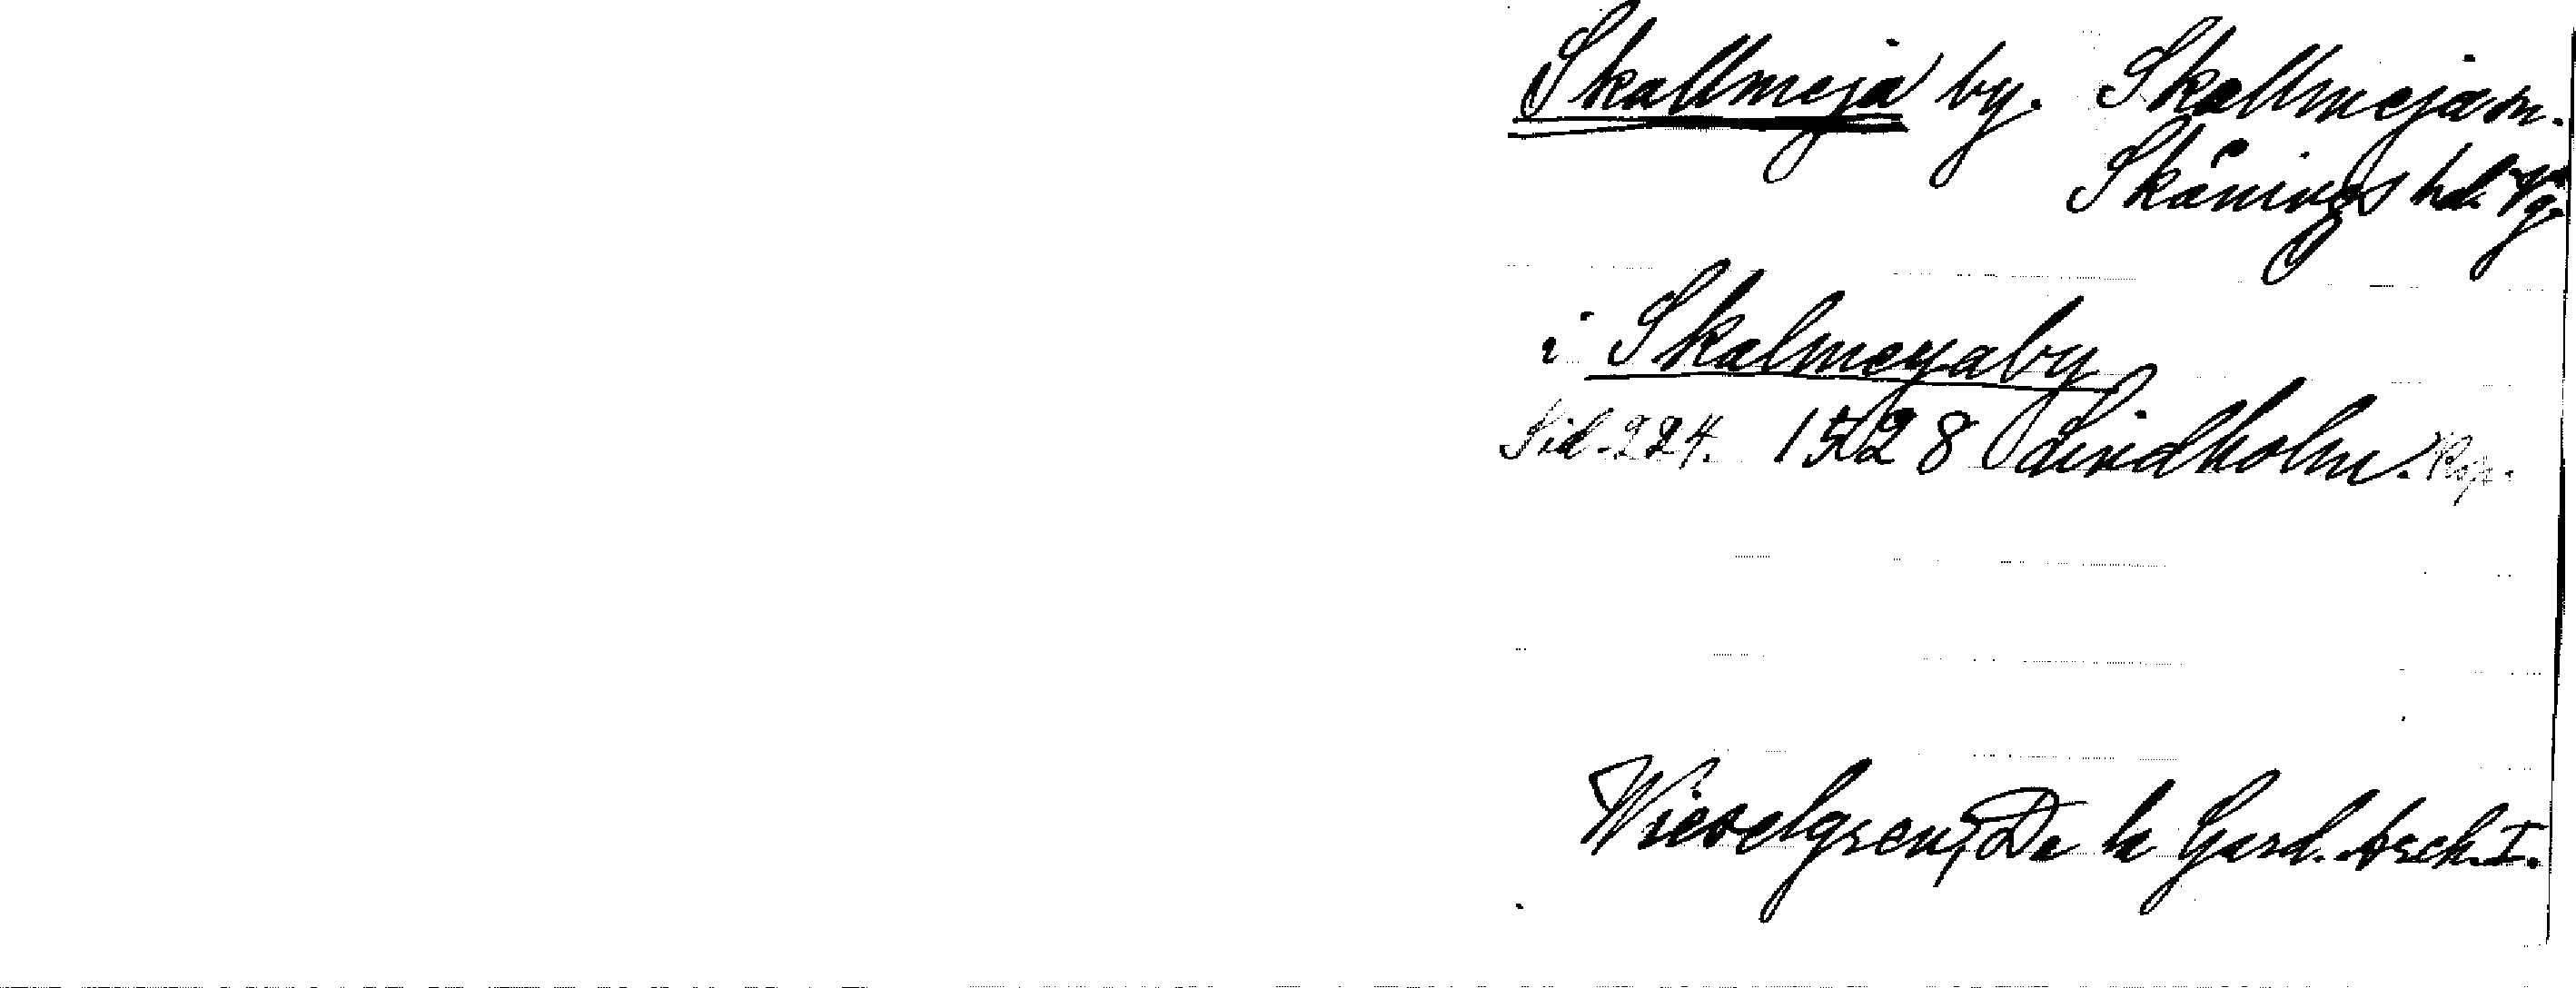 Skallmeja by. Skallmeja sn.
Skånings hd. Vg.
i Skalmeyaby
Sid. 224. 1528 Lindholm. Kop.
Wieselgren, De la Gard. Arch. I.